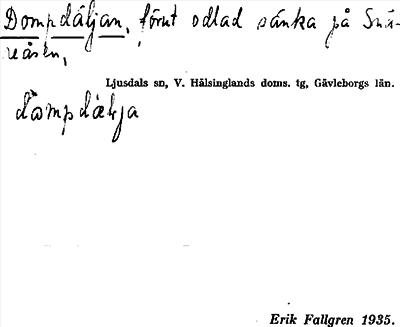 Dompdäljan, förut odlad sänka på Snä-
reåsen,
Ljusdals sn, V. Hälsinglands doms. tg, Gävleborgs län.
Erik Fallgren 1935.